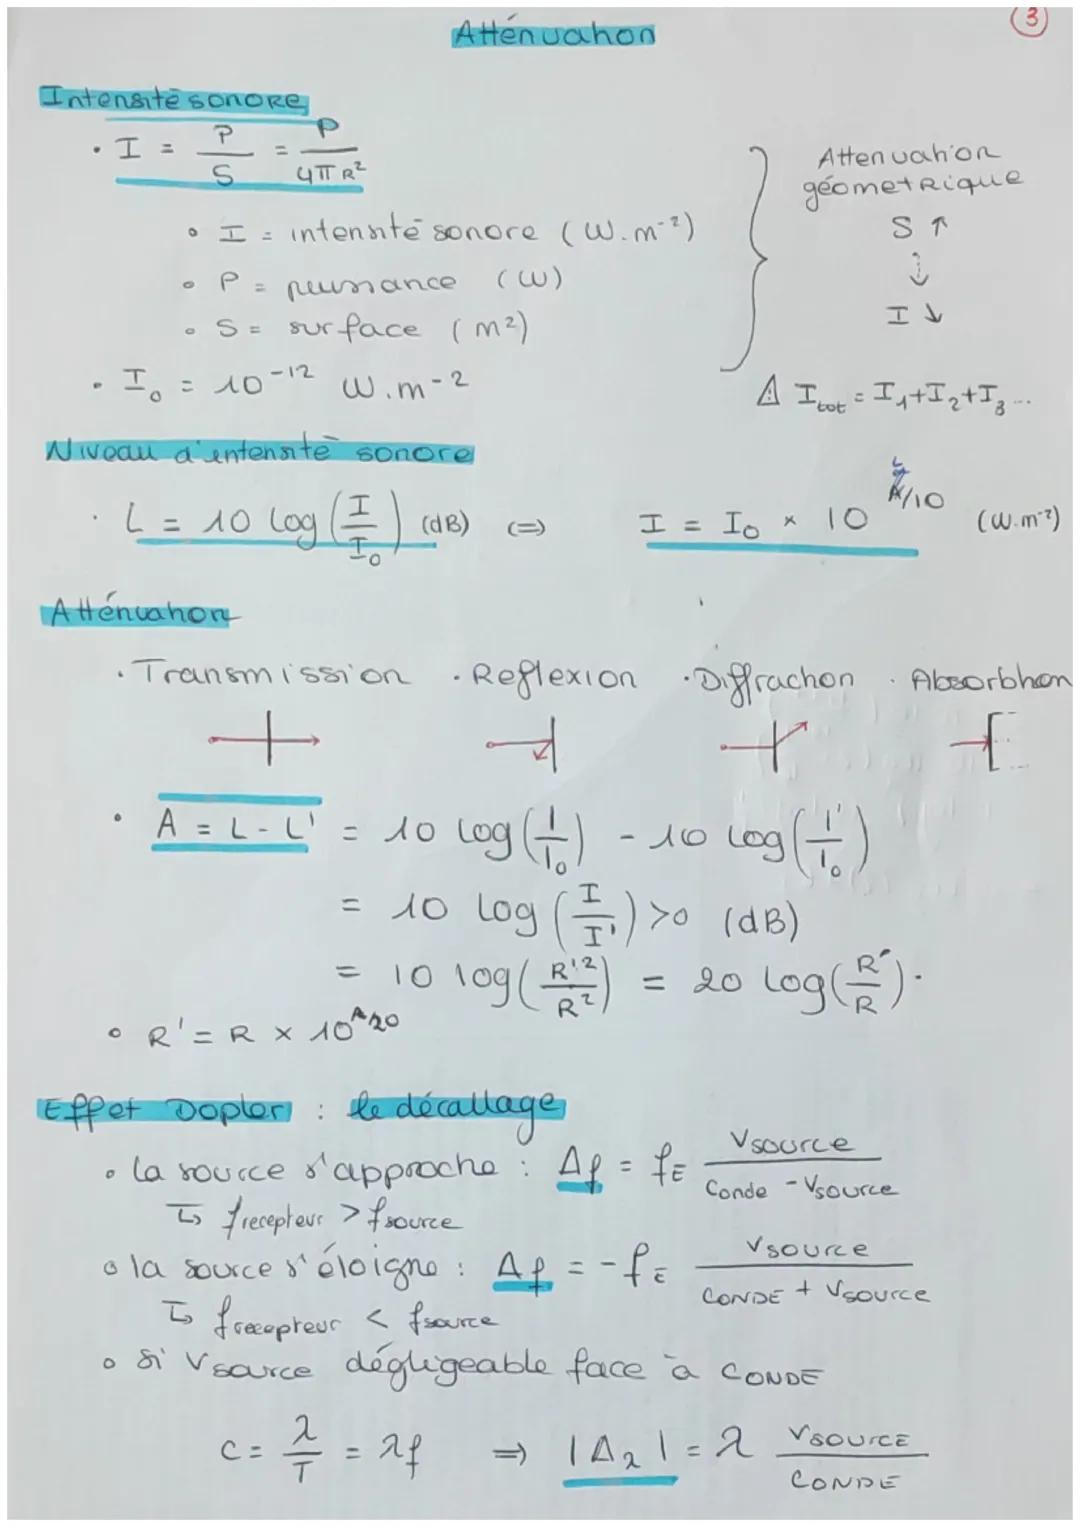 3
Atténuation
Intensité sonore
• I = P/S = P/4πR²
∘ I = intensité sonore (W.m⁻²)
∘ P = puissance (W)
∘ S = surface (m²)
• I₀ = 10⁻¹² W.m⁻²
Attenuation
géometrique
S ↑
↓
I ↓
⚠ Itot = I₁+I₂+I₃...
Niveau d'intensité sonore
• L = 10 log(I/I₀) (dB) ⇔ I = I₀ × 10^(L/10) (W.m⁻²)
Atténuation
• Transmission • Reflexion • Diffraction • Absorbtion
• A = L - L' = 10 log(I/I₀) - 10 log(I'/I₀)
= 10 log(I/I') >0 (dB)
= 10 log(R'²/R²) = 20 log(R'/R).
∘ R' = R × 10^(A/20)
Effet Dopler : le décallage
∘ la source s'approche : Δf = fE Vsource/(Conde - Vsource)
↳ frecepteur > fsource
∘ la source s'éloigne : Δf = - fE Vsource/(CONDE + Vsource)
↳ frecepteur < fsource
∘ si Vsource dégligeable face à CONDE
c = λ/T = λf ⇒ |Δλ| = λ VSOURCE/CONDE